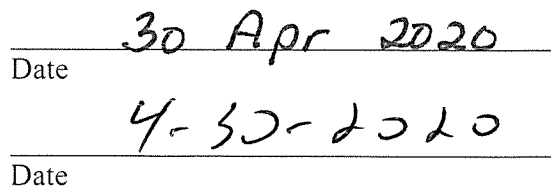 30 Apr 2020
Date
4-30-2020
Date